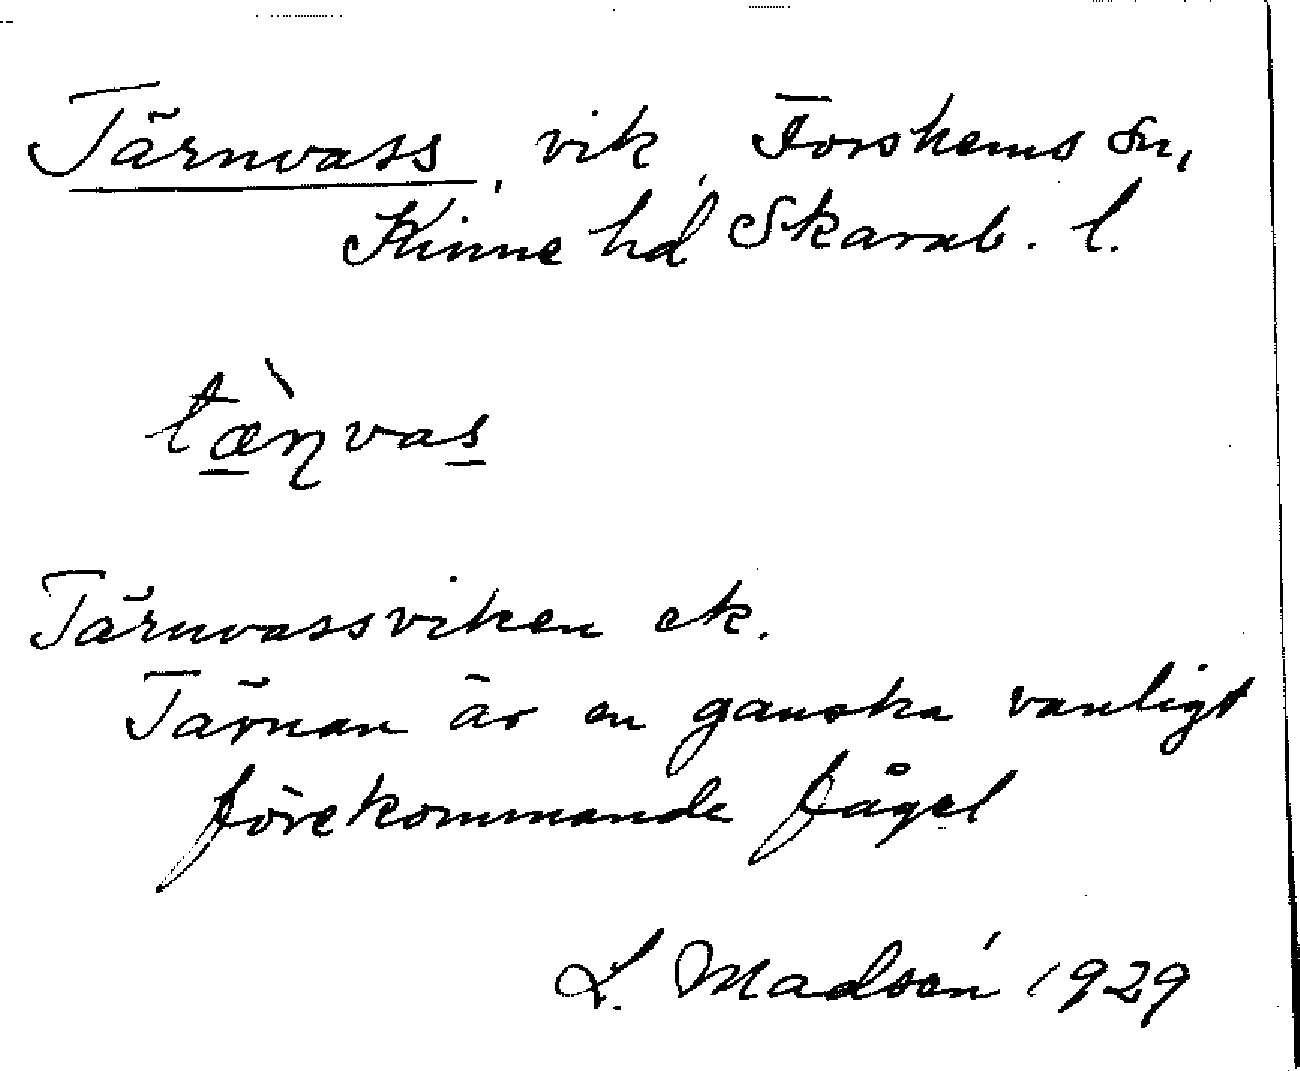 Tärnvass, vik, Forshems sn,
Kinne hd Skarab. l.
tæ̀ɳvas
Tärnvassviken ek.
Tärnan är en ganska vanligt
förekommande fågel
L. Madsén 1929